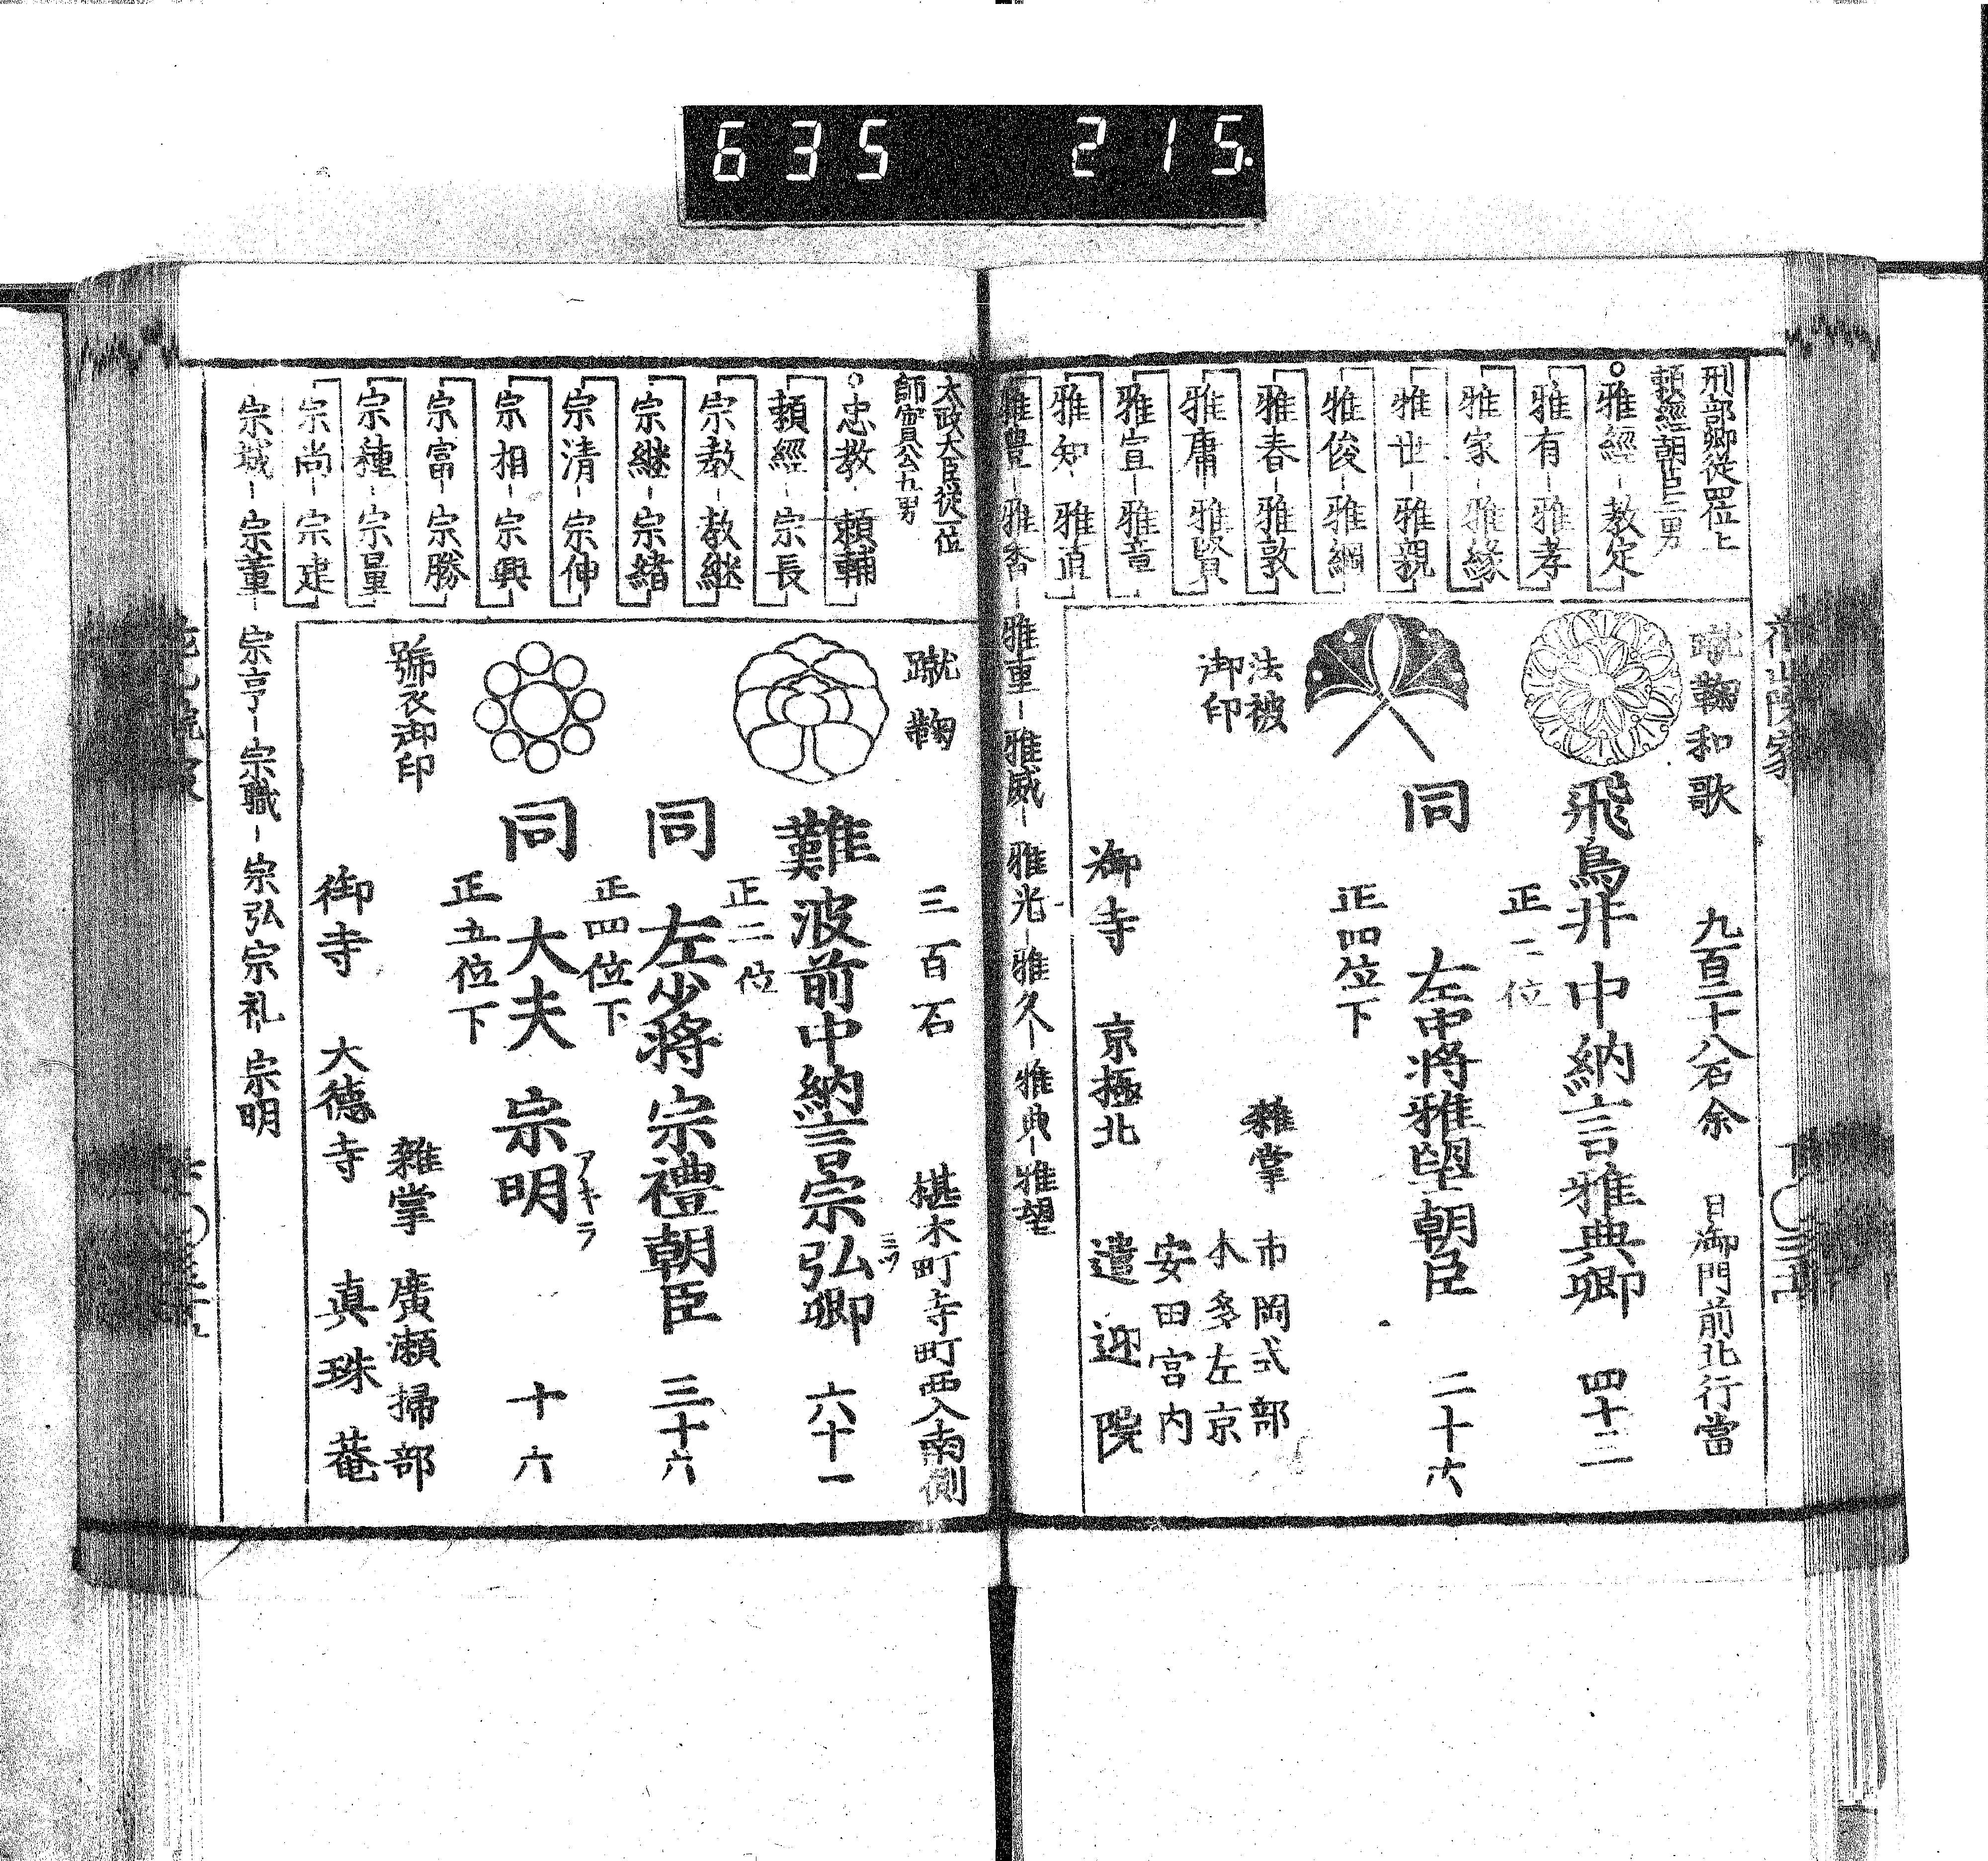 635 215.
花山院家
刑部卿従四位上
頼經朝臣二男
雅經-教定
雅有-雅孝
雅家-雅緣
雅世-雅親
雅俊-雅綱
雅春-雅敦
雅庸-雅賢
雅宣-雅章
雅知-雅直
雅豊-雅香-雅重-雅威-雅光-雅久-雅典-雅望
蹴鞠和歌 九百二十八石余 日御門前北行當
飛鳥井中納言雅典卿 四十二
正二位
同 左中將雅望朝臣 二十六
正四位下
法被
御印
雜掌 市岡式部
本多左京
安田宮内
御寺 京極北 遣迎院
太政大臣従一位
師實公九男
忠教-頼輔
頼經-宗長
宗教-教継
宗継-宗緒
宗清-宗伸
宗相-宗興
宗富-宗勝
宗種-宗量
宗尚-宗建
宗城-宗董-宗亨-宗職-宗弘 宗礼 宗明
蹴鞠 三百石 椹木町寺町西入南側
難波前中納言宗弘卿 六十一
ミツ
正二位
同 左少將宗禮朝臣 三十六
正四位下
同 大夫 宗明 十六
アキラ
正五位下
號衣御印
雜掌 廣瀬掃部
御寺 大德寺 真珠菴